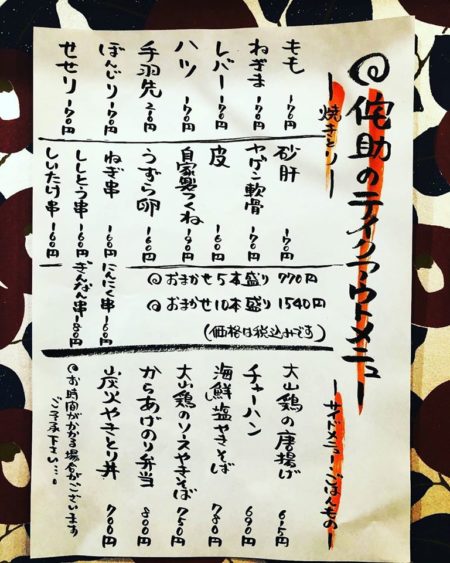 @侘助のテイクアウトメニュー
ー焼きとりー
もも 170円
ねぎま 170円
レバー 170円
ハツ 170円
手羽先 210円
ぼんじり 170円
せせり 170円
砂肝 170円
ヤゲン軟骨 170円
皮 160円
自家製つくね 190円
うずら卵 160円
ねぎ串 160円
にんにく串 160円
ししとう串 160円
ぎんなん串 180円
しいたけ串 160円
@おまかせ5本盛り 770円
@おまかせ10本盛り 1540円
(価格は税込みです)
ーサイドメニュー・ごはんものー
大山鶏の唐揚げ 615円
チャーハン 690円
海鮮塩やきそば 780円
大山鶏のソースやきそば 750円
からあげのり弁当 800円
炭火やきとり丼 700円
@お時間がかかる場合がございます
ご了承下さい...